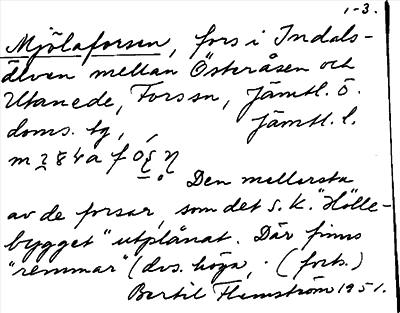 1-3.
Mjölaforsen, fors i Indals-
älven mellan Österåsen och
Utanede, Fors sn, Jämtl. ö.
doms. tg, Jämtl. l.
Den mellersta
av de forsar, som det s.k. "Hölle-
bygget" utplånat. Där finns
"remmar" (dvs. höga, (forts.)
Bertil Flemström 1951.